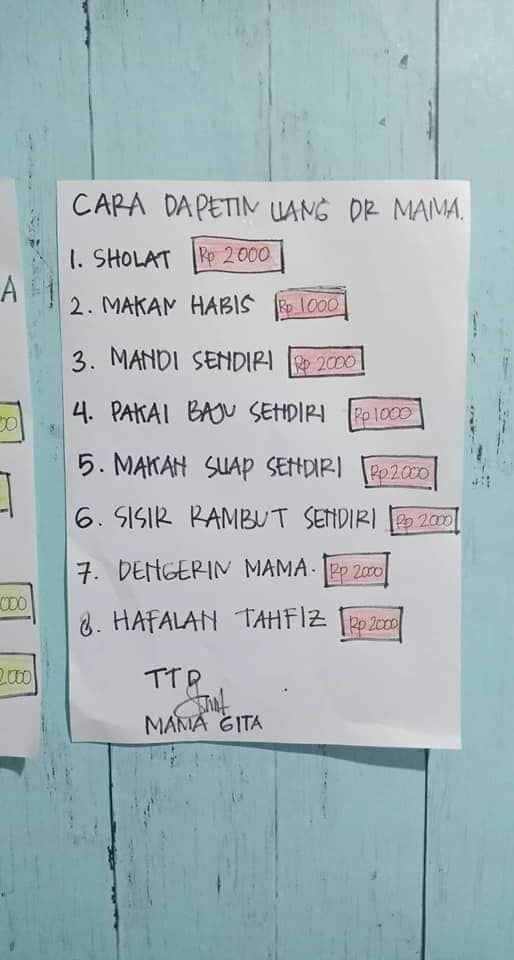 CARA DAPETIN UANG DR MAMA.
1. SHOLAT Rp 2000
2. MAKAN HABIS Rp 1000
3. MANDI SENDIRI Rp 2000
4. PAKAI BAJU SENDIRI Rp 1000
5. MAKAN SUAP SENDIRI Rp 2000
6. SISIR RAMBUT SENDIRI Rp 2000
7. DENGERIN MAMA. Rp 2000
8. HAFALAN TAHFIZ Rp 2000
TTD
MAMA GITA
A
00
000
2.000